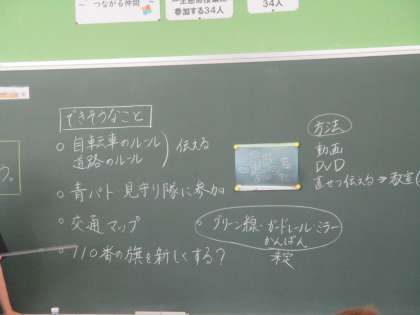 ～ つながる仲間 ～
参加する34人
34人
できそうなこと
○ 自転車のルール
道路のルール
伝える
○ 青パト・見守り隊に参加
○ 交通マップ
○ 110番の旗を新しくする？
方法
動画
DVD
直せつ伝える⇒教室
○ グリーン線・ガードレール・ミラー
かんばん
う。